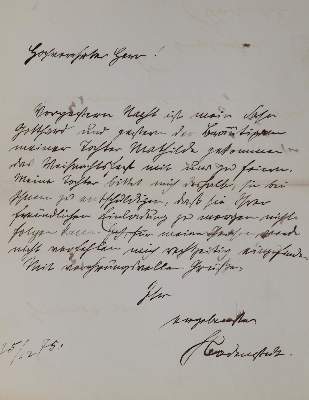 Hochverehrter Herr!
Vorgestern Nacht ist mein Sohn
Gotthard und gestern der Bräutigam
meiner Tochter Mathilde gekommen
das Weihnachtsfest mit uns zu feiern.
Meine Tochter bittet mich deshalb, sie bei
Ihnen zu entschuldigen, daß sie Ihrer
freundlichen Einladung zu morgen nicht
folgen kann; ich, für meine Person werde
nicht verfehlen mich rechtzeitig einzufinden.
Mit verehrungsvollen Grüßen
Ihr
ergebenster
Bodenstedt.
25/12 75.